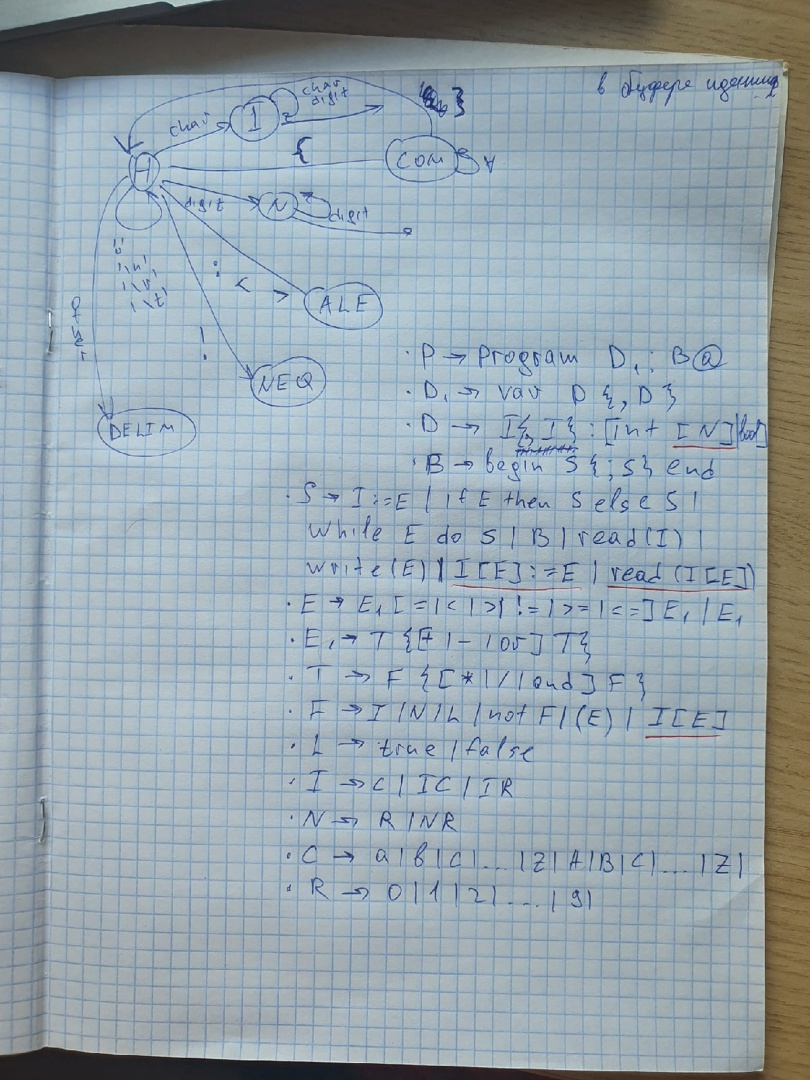 в буфере
char
I
char
digit
}
{
COM
∀
H
digit
N
digit
' '
'\n'
'\r'
'\t'
:
<
>
ALE
!
NEQ
DELIM
· P → Program D₁; B@
· D₁ → var D {, D}
· D → I{, I} : [int [N] | bool]
· B → begin S {; S} end
· S → I:=E | if E then S else S |
while E do S | B | read(I) |
write(E) | I[E]:=E | read(I[E])
· E → E₁ [=|<|>|!=|>=|<=] E₁ | E₁
· E₁ → T {[+|-|or] T}
· T → F {[*|/|and] F}
· F → I|N|L|not F|(E)| I[E]
· L → true|false
· I → C | IC | IR
· N → R | NR
· C → a|b|c|...|z|A|B|C|...|Z|
· R → 0|1|2|...|9|